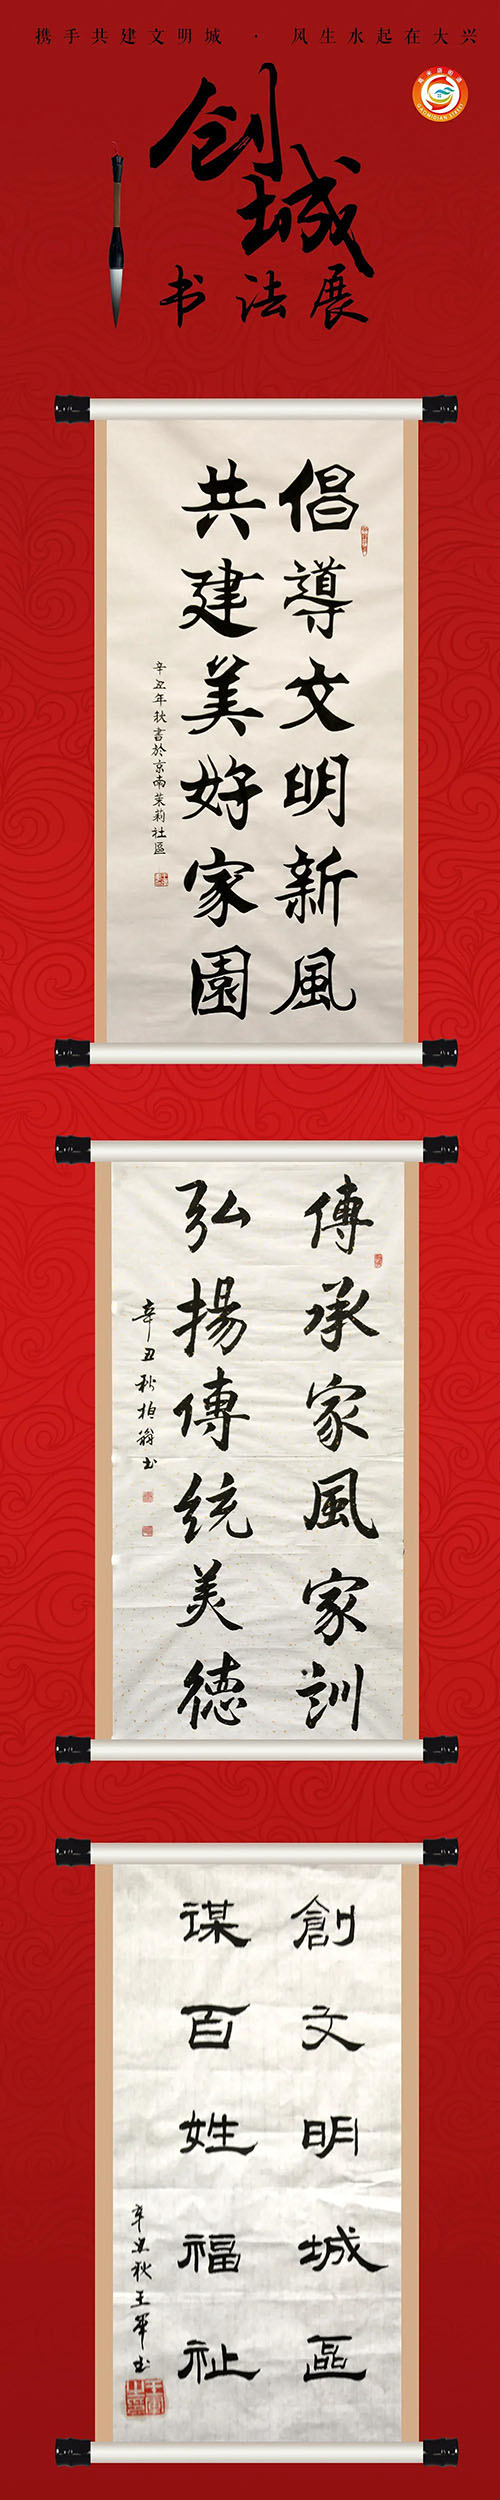 携手共建文明城 · 风生水起在大兴
高米店街道
GAOMIDIAN STREET
创城
书法展
倡導文明新風
共建美好家園
辛丑年秋書於京南茉莉社區
傳承家風家訓
弘揚傳統美德
辛丑秋柏翁书
創文明城區
谋百姓福祉
辛丑秋王军书